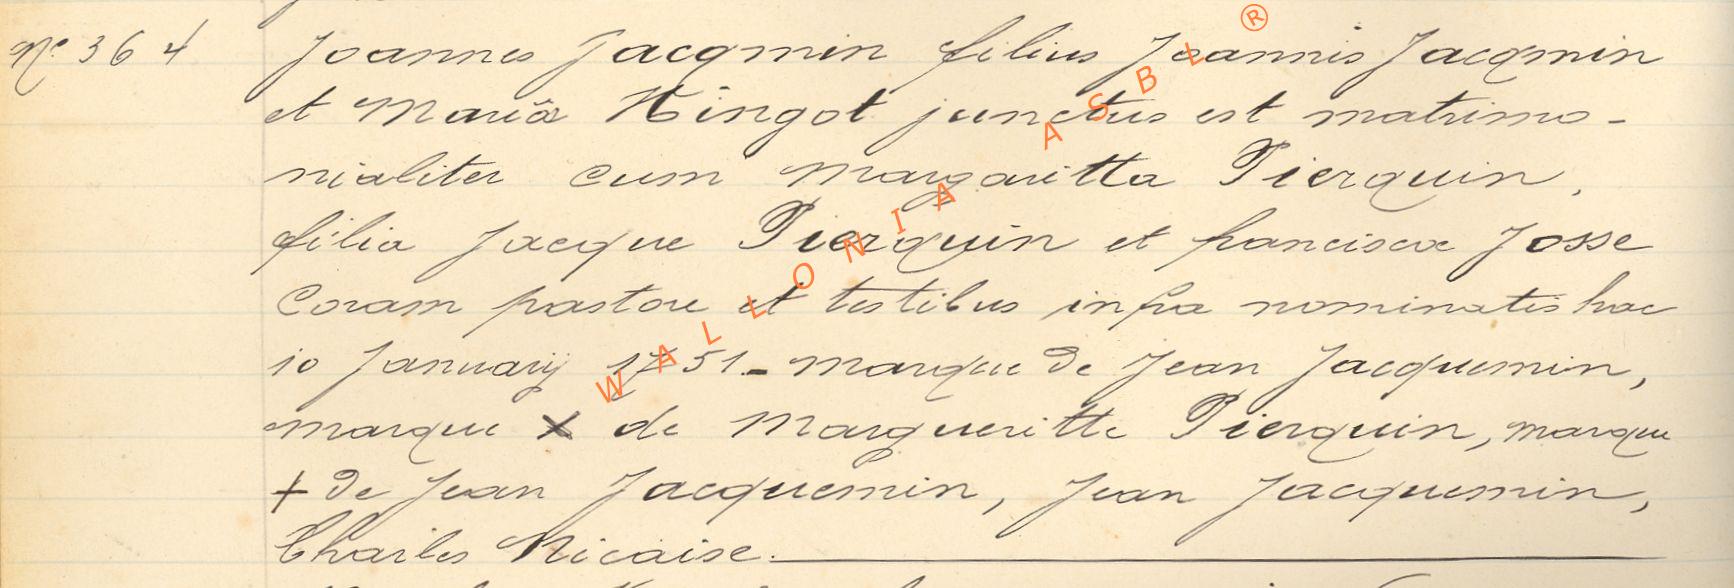 No 364 Joannes Jacqmin filius Joannis Jacqmin
et Mariâ Hingot junctus est matrimo-
nialiter cum Margaritta Pierquin,
filia Jacque Pierquin et franciscæ Josse
Coram pastore et testibus infra nominatis hac
10 Januarij 1751 - marque de Jean Jacquemin,
marque X de Margueritte Pierquin, marque
+ de Jean Jacquemin, Jean Jacquemin,
Charles Nicaise.
WALLONIA ASBL ®